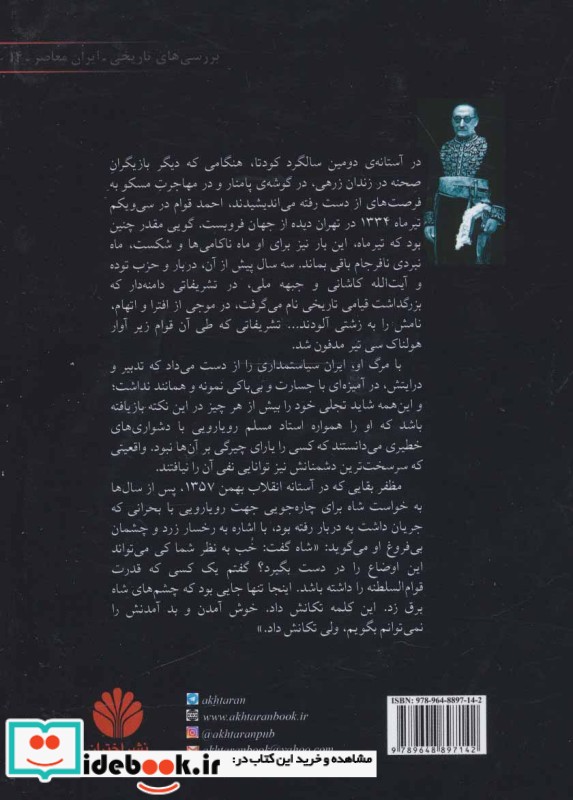 بررسی‌های تاریخی ـ ایران معاصر ـ ۱۴
در آستانه‌ی دومین سالگرد کودتا، هنگامی که دیگر بازیگران
صحنه در زندان زرهی، در گوشه‌ی پامنار و در مهاجرتِ مسکو به
فرصت‌های از دست رفته می‌اندیشیدند، احمد قوام در سی‌ویکم
تیرماه ۱۳۳۴ در تهران دیده از جهان فروبست. گویی مقدر چنین
بود که تیرماه، این بار نیز برای او ماه ناکامی‌ها و شکست، ماه
نبردی نافرجام باقی بماند. سه سال پیش از آن، دربار و حزب توده
و آیت‌الله کاشانی و جبهه ملی، در تشریفاتی دامنه‌دار که
بزرگداشت قیامی تاریخی نام می‌گرفت، در موجی از افترا و اتهام،
نامش را به زشتی آلودند... تشریفاتی که طی آن قوام زیر آوار
هولناک سی تیر مدفون شد.
با مرگ او، ایران سیاستمداری را از دست می‌داد که تدبیر و
درایتش، در آمیزه‌ای با جسارت و بی‌باکی نمونه و همانند نداشت؛
و این‌همه شاید تجلی خود را بیش از هر چیز در این نکته بازیافته
باشد که او را همواره استاد مسلم رویارویی با دشواری‌های
خطیری می‌دانستند که کسی را یارای چیرگی بر آن‌ها نبود. واقعیتی
که سرسخت‌ترین دشمنانش نیز توانایی نفی آن را نیافتند.
مظفر بقایی که در آستانه انقلاب بهمن ۱۳۵۷، پس از سال‌ها
به خواست شاه برای چاره‌جویی جهت رویارویی با بحرانی که
جریان داشت به دربار رفته بود، با اشاره به رخسار زرد و چشمان
بی‌فروغ او می‌گوید: «شاه گفت: خُب به نظر شما کی می‌تواند
این اوضاع را در دست بگیرد؟ گفتم یک کسی که قدرت
قوام‌السلطنه را داشته باشد. اینجا تنها جایی بود که چشم‌های شاه
برق زد. این کلمه تکانش داد، خوش آمدن و بد آمدنش را
نمی‌توانم بگویم، ولی تکانش داد.»
akhtaran
www.akhtaranbook.ir
@akhtaranpub
akhtaranbook@yahoo.com
ISBN: 978-964-8897-14-2
9 789648 897142
نشر اختران
idebook.ir
مشاهده و خرید این کتاب در: